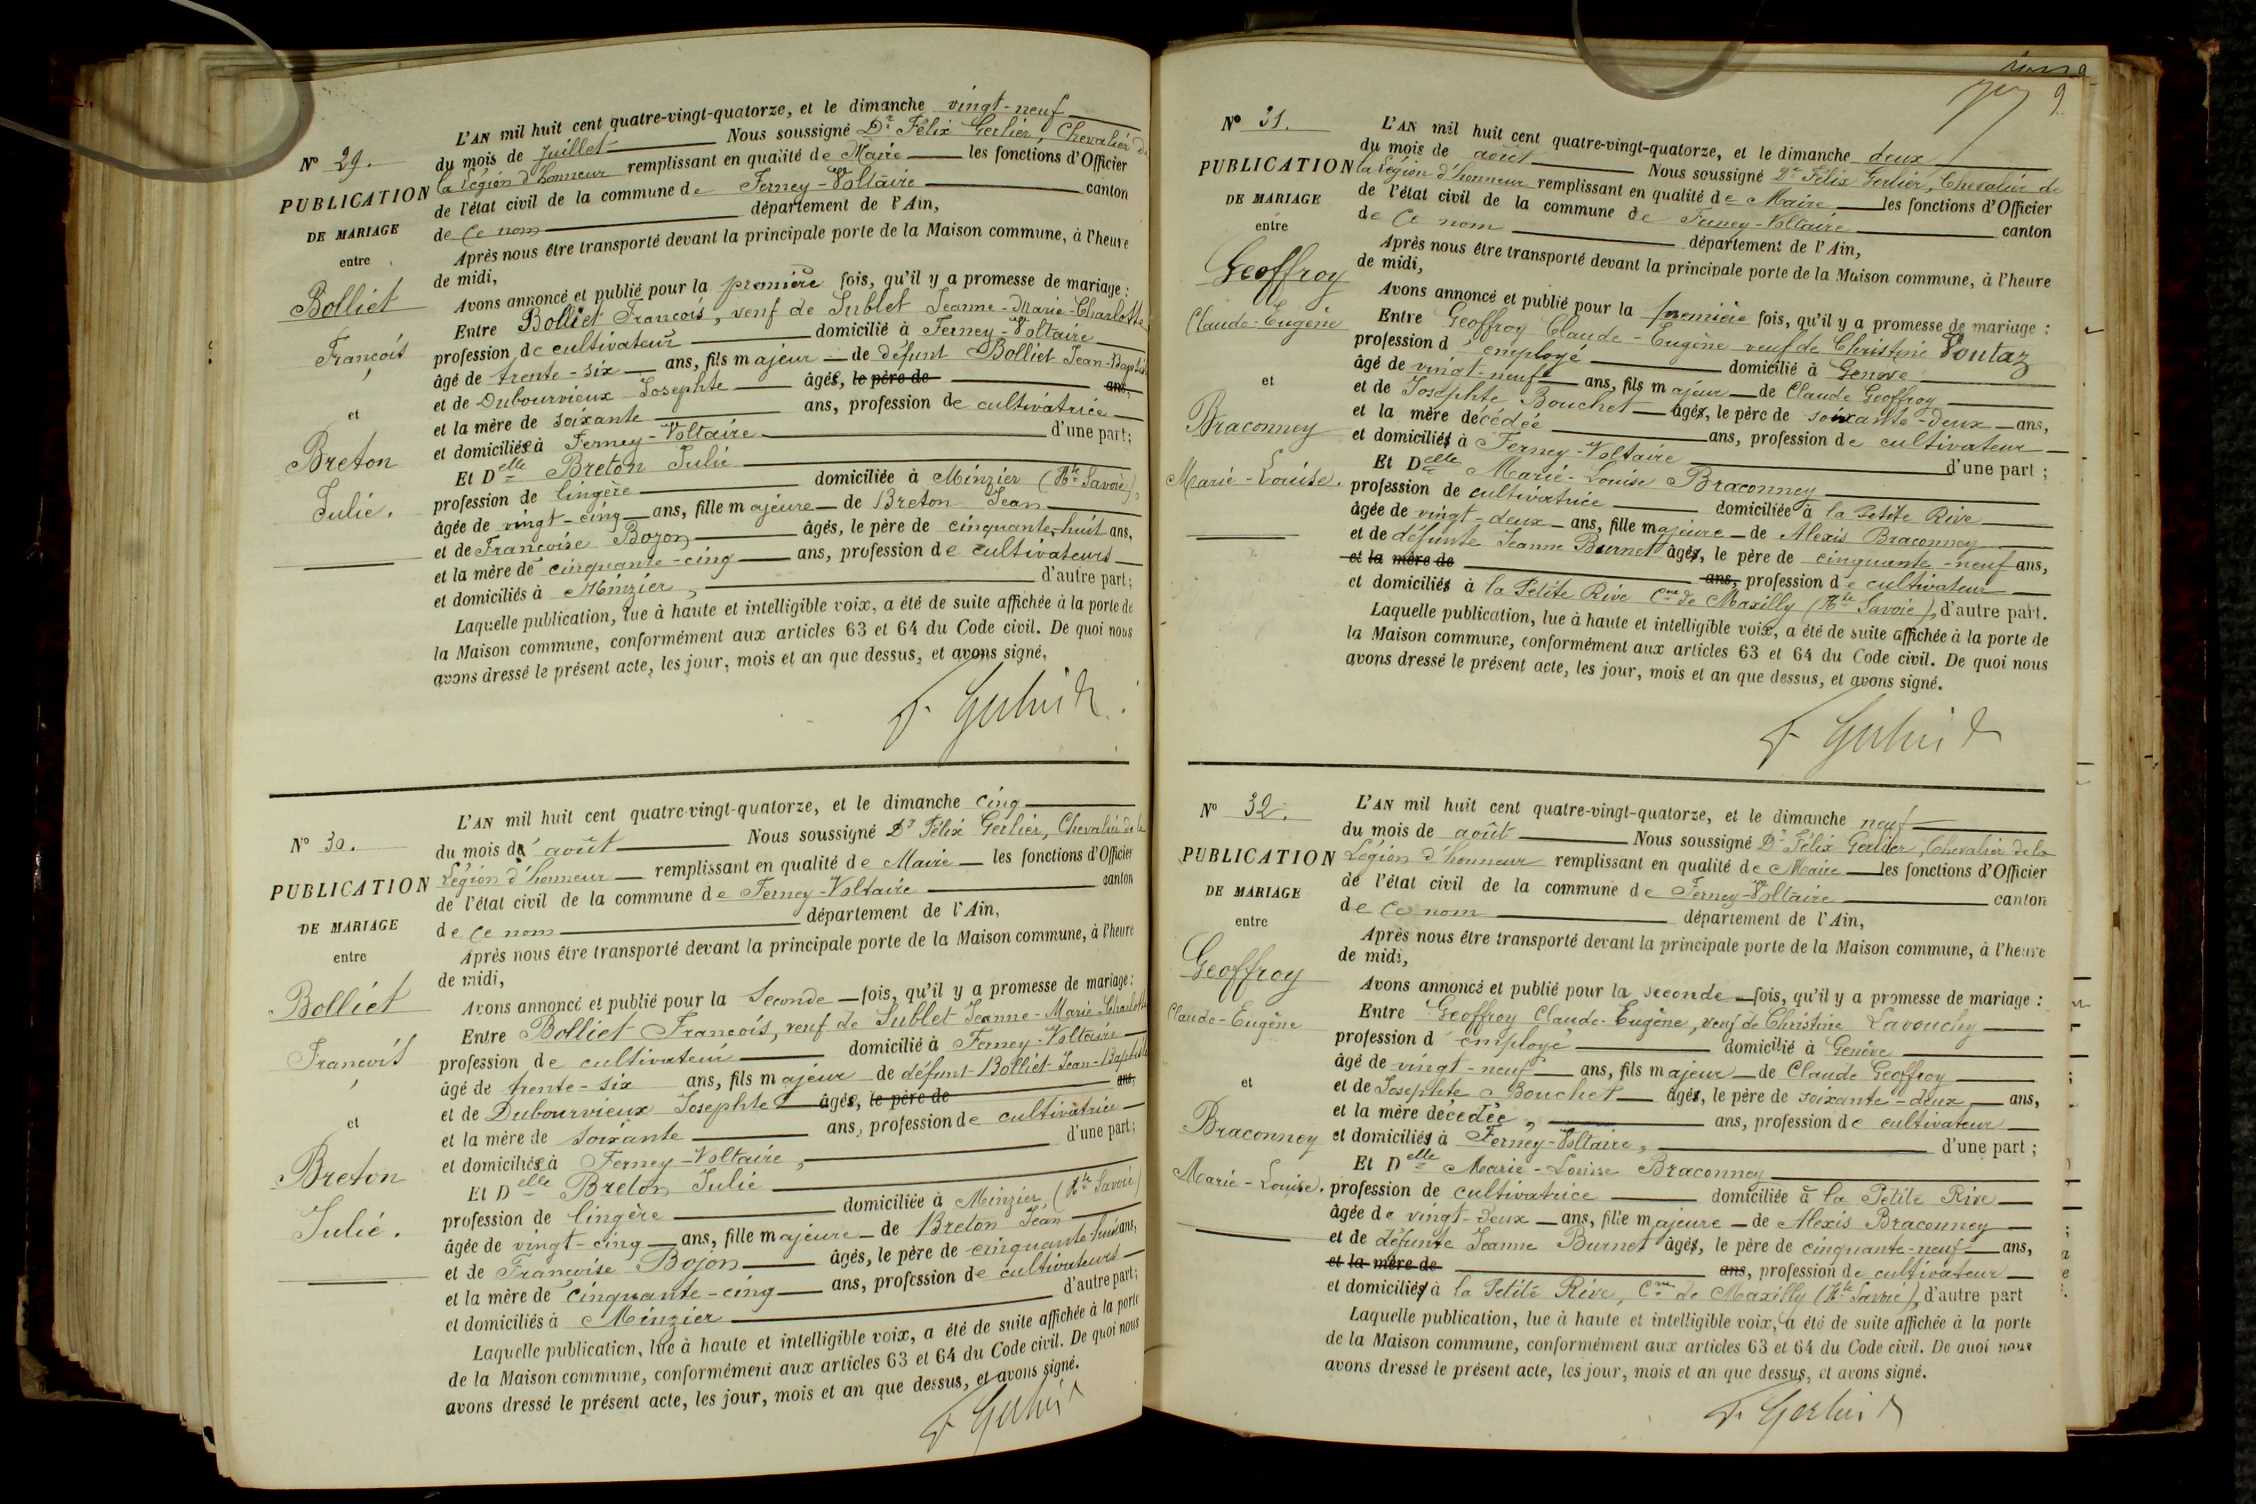 L'AN mil huit cent quatre-vingt-quatorze, et le dimanche vingt-neuf
du mois de Juillet Nous soussigné Dr Félix Gerlier, Chevalier de
la Légion d'honneur remplissant en qualité de Maire les fonctions d'Officier
de l'état civil de la commune de Ferney-Voltaire canton
de ce nom département de l'Ain,
Après nous être transporté devant la principale porte de la Maison commune, à l'heure
de midi,
Avons annoncé et publié pour la première fois, qu'il y a promesse de mariage :
Entre Bolliet François, veuf de Sublet Jeanne-Marie-Charlotte
profession de cultivateur domicilié à Ferney-Voltaire
âgé de trente-six ans, fils majeur de défunt Bolliet Jean-Baptiste
et de Dubourvieux Josephte âgés, le père de ans,
et la mère de soixante ans, profession de cultivatrice
et domiciliés à Ferney-Voltaire d'une part;
Et Delle Breton Julie
profession de lingère domiciliée à Minzier (Hte Savoie),
âgée de vingt-cinq ans, fille majeure de Breton Jean
et de Françoise Bozon âgés, le père de cinquante-huit ans,
et la mère de cinquante-cinq ans, profession de cultivateurs
et domiciliés à Minzier, d'autre part;
Laquelle publication, lue à haute et intelligible voix, a été de suite affichée à la porte de
la Maison commune, conformément aux articles 63 et 64 du Code civil. De quoi nous
avons dressé le présent acte, les jour, mois et an que dessus, et avons signé.
N° 29.
PUBLICATION
DE MARIAGE
entre
Bolliet
François
et
Breton
Julie.
L'AN mil huit cent quatre-vingt-quatorze, et le dimanche cinq
du mois de août Nous soussigné Dr Félix Gerlier, Chevalier de la
Légion d'honneur remplissant en qualité de Maire les fonctions d'Officier
de l'état civil de la commune de Ferney-Voltaire canton
de ce nom département de l'Ain,
Après nous être transporté devant la principale porte de la Maison commune, à l'heure
de midi,
Avons annoncé et publié pour la seconde fois, qu'il y a promesse de mariage :
Entre Bolliet François, veuf de Sublet Jeanne-Marie-Charlotte
profession de cultivateur domicilié à Ferney-Voltaire
âgé de trente-six ans, fils majeur de défunt Bolliet Jean-Baptiste
et de Dubourvieux Josephte âgés, le père de ans,
et la mère de soixante ans, profession de cultivatrice
et domiciliés à Ferney-Voltaire, d'une part;
Et Delle Breton Julie
profession de lingère domiciliée à Minzier (Hte Savoie)
âgée de vingt-cinq ans, fille majeure de Breton Jean
et de Françoise Bojon âgés, le père de cinquante-huit ans,
et la mère de cinquante-cinq ans, profession de cultivateurs
et domiciliés à Minzier d'autre part;
Laquelle publication, lue à haute et intelligible voix, a été de suite affichée à la porte
de la Maison commune, conformément aux articles 63 et 64 du Code civil. De quoi nous
avons dressé le présent acte, les jour, mois et an que dessus, et avons signé.
N° 30.
PUBLICATION
DE MARIAGE
entre
Bolliet
François
et
Breton
Julie.
9
L'AN mil huit cent quatre-vingt-quatorze, et le dimanche deux
du mois de août Nous soussigné Dr Félix Gerlier, Chevalier de
la Légion d'honneur remplissant en qualité de Maire les fonctions d'Officier
de l'état civil de la commune de Ferney-Voltaire canton
de ce nom département de l'Ain,
Après nous être transporté devant la principale porte de la Maison commune, à l'heure
de midi,
Avons annoncé et publié pour la première fois, qu'il y a promesse de mariage :
Entre Geoffroy Claude-Eugène veuf de Christine Voutaz
profession d'employé domicilié à Genève
âgé de vingt-neuf ans, fils majeur de Claude Geoffroy
et de Josephte Bouchet âgés, le père de soixante-deux ans,
et la mère décédée ans, profession de cultivateur
et domiciliés à Ferney-Voltaire d'une part ;
Et Delle Marie-Louise Braconney
profession de cultivatrice domiciliée à la Petite Rive
âgée de vingt-deux ans, fille majeure de Alexis Braconney
et de défunte Jeanne Burnet âgés, le père de cinquante-neuf ans,
et la mère de ans, profession de cultivateur
et domiciliés à la Petite Rive Cne de Maxilly (Hte Savoie), d'autre part.
Laquelle publication, lue à haute et intelligible voix, a été de suite affichée à la porte de
la Maison commune, conformément aux articles 63 et 64 du Code civil. De quoi nous
avons dressé le présent acte, les jour, mois et an que dessus, et avons signé.
N° 31.
PUBLICATION
DE MARIAGE
entre
Geoffroy
Claude-Eugène
et
Braconney
Marie-Louise.
L'AN mil huit cent quatre-vingt-quatorze, et le dimanche neuf
du mois de août Nous soussigné Dr Félix Gerlier, Chevalier de la
Légion d'honneur remplissant en qualité de Maire les fonctions d'Officier
de l'état civil de la commune de Ferney-Voltaire canton
de ce nom département de l'Ain,
Après nous être transporté devant la principale porte de la Maison commune, à l'heure
de midi,
Avons annoncé et publié pour la seconde fois, qu'il y a promesse de mariage :
Entre Geoffroy Claude-Eugène, veuf de Christine Lavouchy
profession d'employé domicilié à Genève
âgé de vingt-neuf ans, fils majeur de Claude Geoffroy
et de Josephte Bouchet âgés, le père de soixante-deux ans,
et la mère décédée, ans, profession de cultivateur
et domiciliés à Ferney-Voltaire, d'une part ;
Et Delle Marie-Louise Braconney
profession de cultivatrice domiciliée à la Petite Rive
âgée de vingt-deux ans, fille majeure de Alexis Braconney
et de défunte Jeanne Burnet âgés, le père de cinquante-neuf ans,
et la mère de ans, profession de cultivateur
et domiciliés à la Petite Rive, Cne de Maxilly (Hte Savoie), d'autre part
Laquelle publication, lue à haute et intelligible voix, a été de suite affichée à la porte
de la Maison commune, conformément aux articles 63 et 64 du Code civil. De quoi nous
avons dressé le présent acte, les jour, mois et an que dessus, et avons signé.
N° 32.
PUBLICATION
DE MARIAGE
entre
Geoffroy
Claude-Eugène
et
Braconney
Marie-Louise.